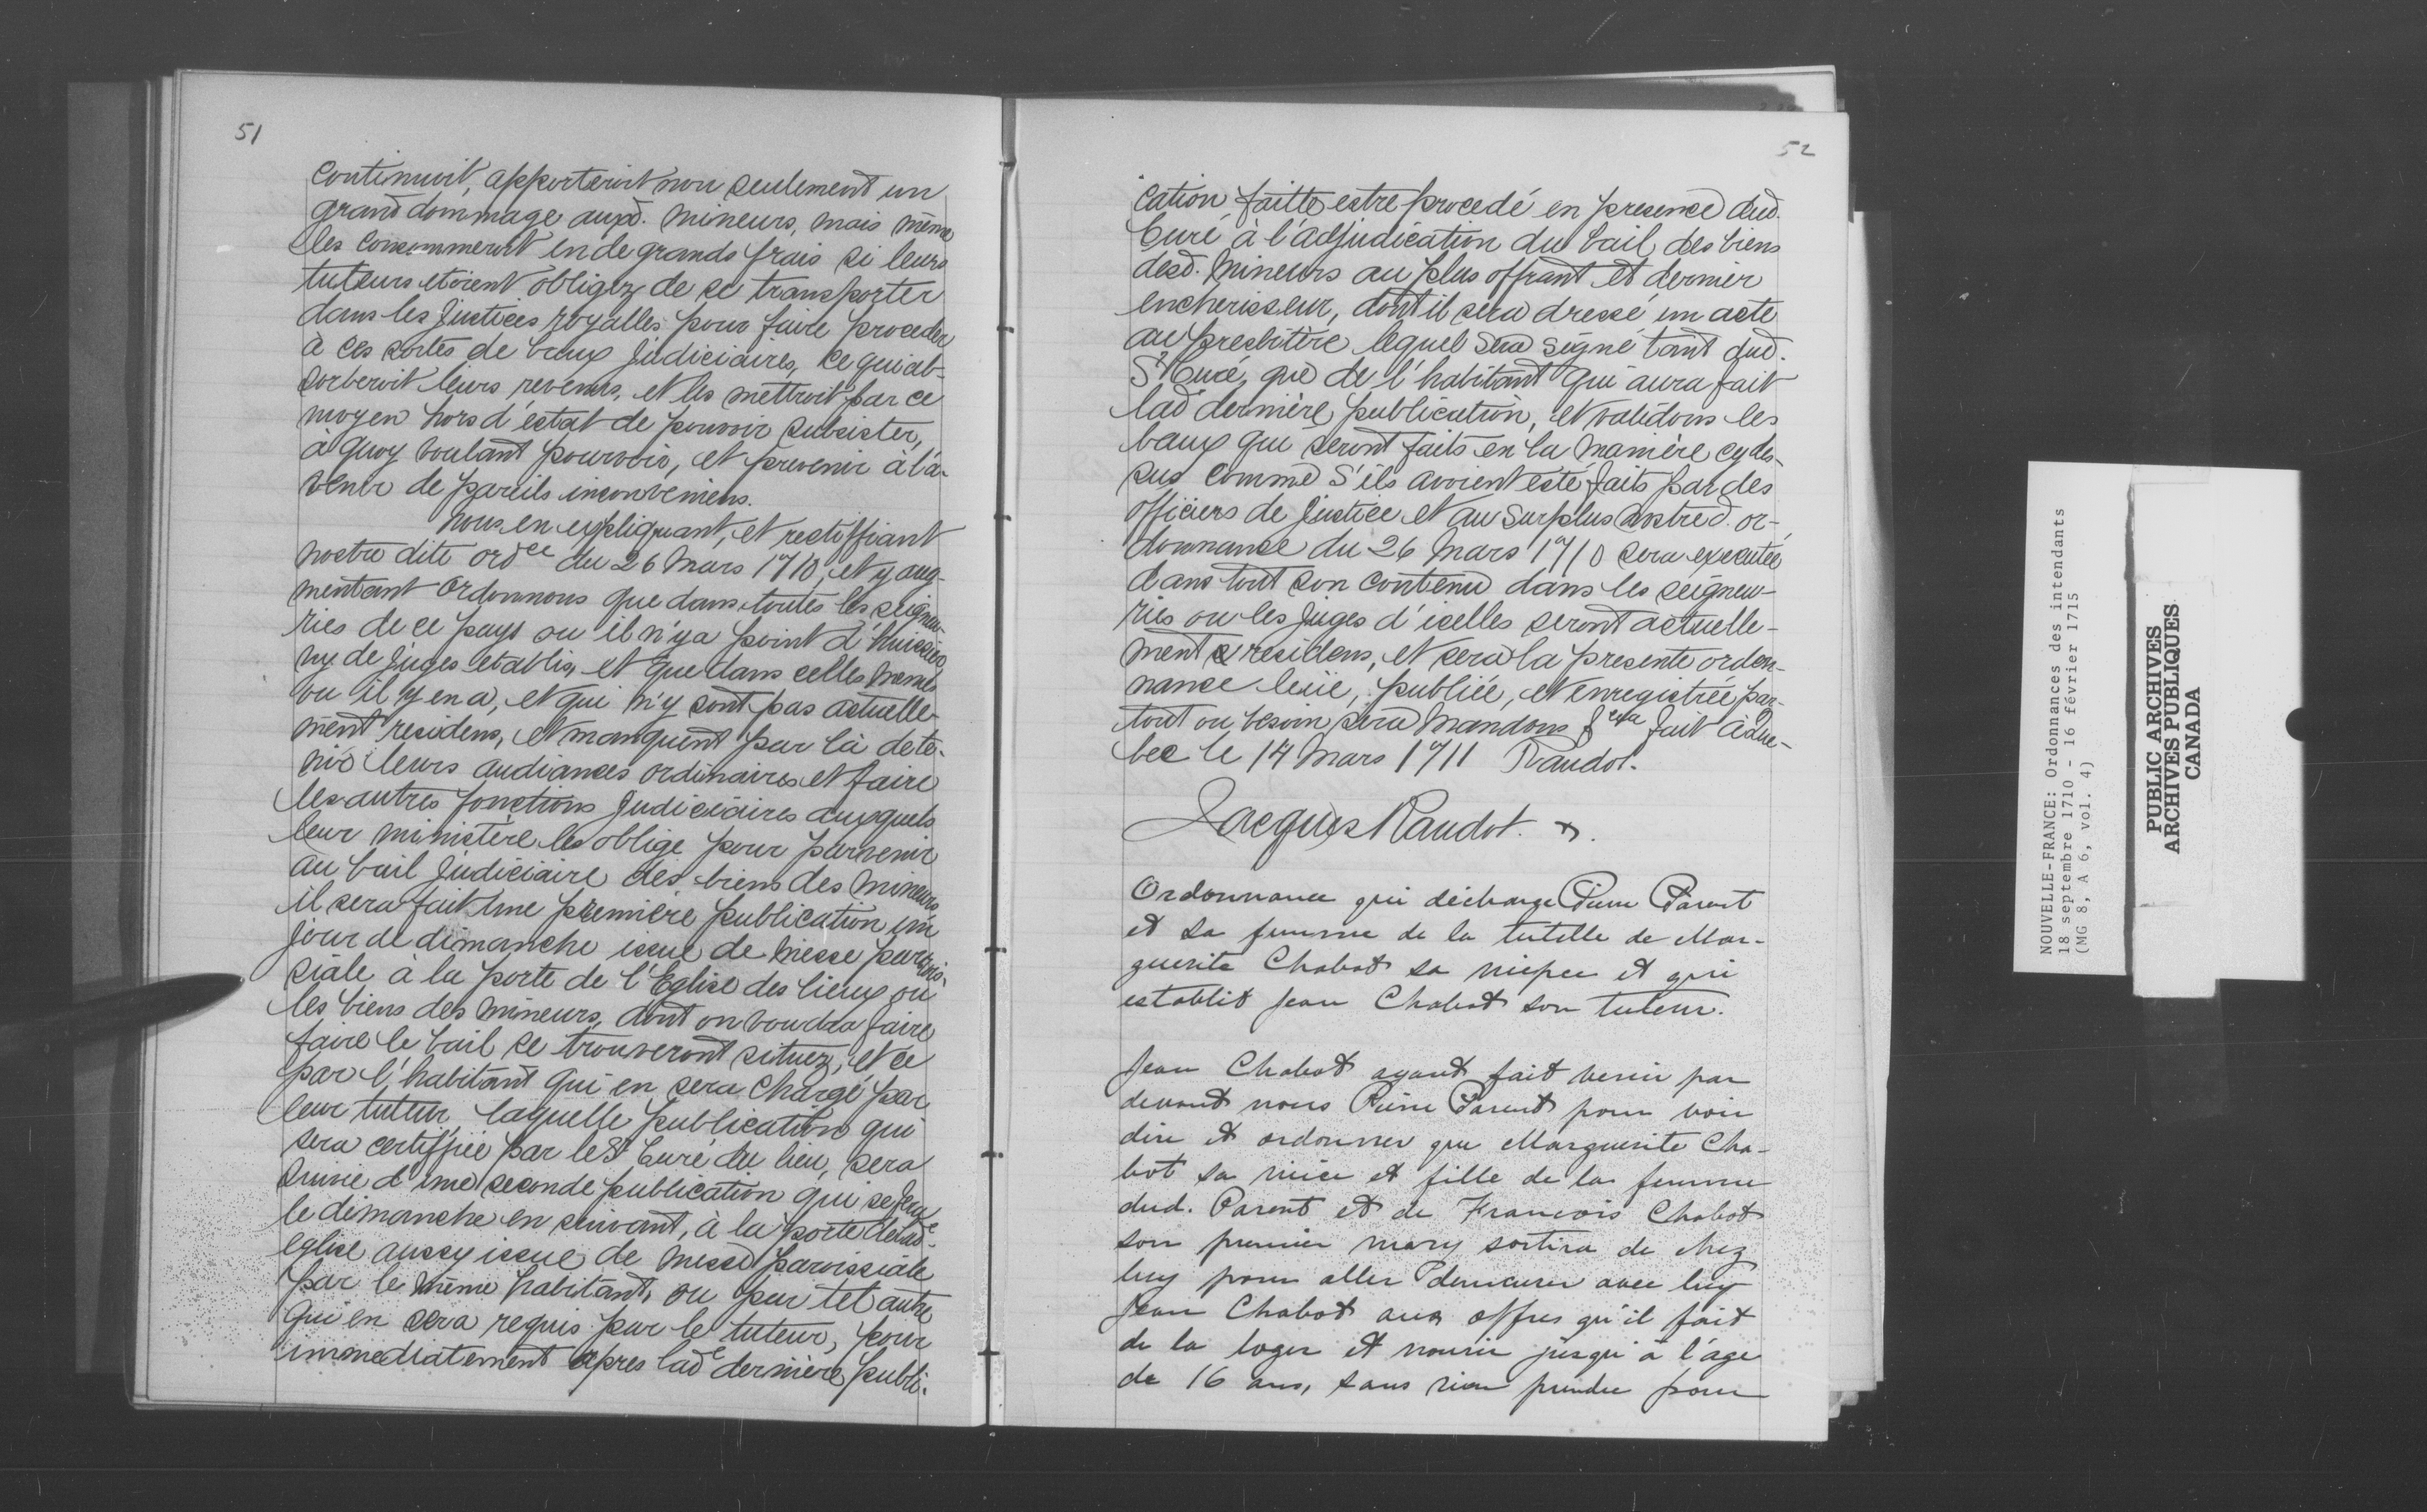 51
continuoit, apporteroit non seulement un
grand dommage auxd. mineurs, mais même
les consommeroit en de grands frais si leurs
tuteurs etoient obligez de se transporter
dans les Justices royalles pour faire proceder
à ces sortes de baux judiciaires, ce qui ab-
sorberoit leurs revenus, et les mettroit par ce
moyen hors d'estat de pouvoir subsister,
à quoy voulant pourvoir, et prevenir à l'a-
venir de pareils inconveniens.
nous en expliquant, et rectiffiant
nostre dite ordce du 26 Mars 1710, et y aug-
mentant ordonnons que dans toutes les seigneu-
ries de ce pays ou il n'y a point d'huissiers
ny de Juges etablis, et que dans celles mêmes
ou il y en a, et qui n'y sont pas actuelle-
ment residens, et manquent par là de te-
nir leurs audiances ordinaires et faire
les autres fonctions Judiciaires auxquels
leur ministère les oblige pour parvenir
au bail Judiciaire des biens des mineurs
il sera fait une première publication un
jour de dimanche issue de messe parois-
siale à la porte de l'Eglise des lieux ou
les biens des mineurs, dont on voudra faire
faire le bail se trouveront situez, et ce
par l'habitant qui en sera chargé par
leur tuteur laquelle publication qui
sera certiffiée par le Sr Curé du lieu, sera
suivie d'une seconde publication qui se fera
le dimanche en suivant, à la porte de lade
eglise aussy issue de messe paroissiale
par le même habitant, ou par tel autre
qui en sera requis par le tuteur, pour
immediatement apres lade dernière publi-
52
cation faitte estre procedé en presence dud.
Curé à l'adjudication du bail des biens
desd. mineurs au plus offrant et dernier
encherisseur, dont il sera dressé un acte
au presbitère lequel sera signé tant dud.
Sr Curé, que de l'habitant qui aura fait
lad dernière publication, et validons les
baux qui seront faits en la manière cy des-
sus comme s'ils avoient esté faits par des
officiers de Justice et au surplus nostred. or-
donnance du 26 Mars 1710 sera executée
dans tout son contenu dans les seigneu-
ries ou les Juges d'icelles seront actuelle-
ment residens, et sera la presente ordon-
nance leüe, publiée, et enregistrée par-
tout ou besoin sera Mandons &cta fait à Que-
bec le 17 Mars 1711 Raudot.
Jacques Raudot.
Ordonnance qui décharge Pierre Parent
et sa femme de la tutelle de Mar-
guerite Chabot sa niepce et qui
establit Jean Chabot son tuteur.
Jean Chabot ayant fait venir par
devant nous Pierre Parent pour voir
dire et ordonner que Marguerite Cha-
bot sa nièce et fille de la femme
dud. Parent et de Francois Chabot
son premier mary sortira de chez
luy pour aller demeurer avec luy
Jean Chabot aux offres qu'il fait
de la loger et nourir jusqu'à l'age
de 16 ans, sans rien prendre pour
NOUVELLE-FRANCE: Ordonnances des intendants
18 septembre 1710 - 16 février 1715
(MG 8, A 6, vol. 4)
PUBLIC ARCHIVES
ARCHIVES PUBLIQUES
CANADA